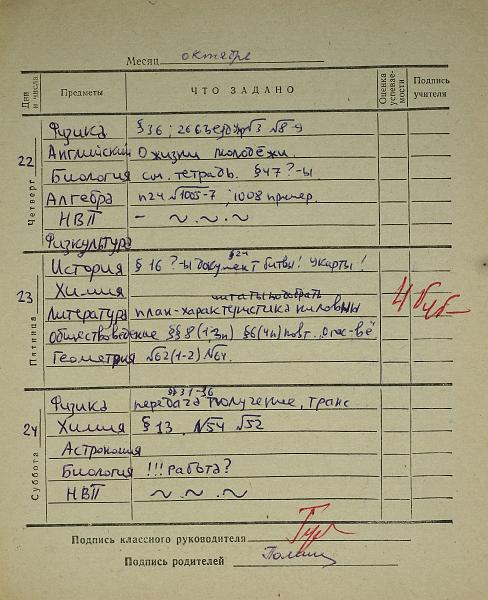 Месяц октябрь
Дни и числа Предметы ЧТО ЗАДАНО Оценка успевае-мости Подпись учителя
22 Четверг
Физика §36; №3 №8-9
Английский О жизни молодёжи.
Биология сл. тетрадь. §47 ?-ы
Алгебра п24 №1005-7; 1008 пример.
НВП – ~.~.~
Физкультура
23 Пятница
§24
История §16 ?-ы документ битвы! Укарты!
Химия
цитаты подобрать
Литература план-характеристика 4
Обществоведение §§8(1,3п) §6(4п) повт.
Геометрия №62(1-2) №64.
24 Суббота
§§31-36
Физика передача получение, транс
Химия §13. №54 №52
Астрономия
Биология !!! работа?
НВП ~.~.~
Подпись классного руководителя
Подпись родителей